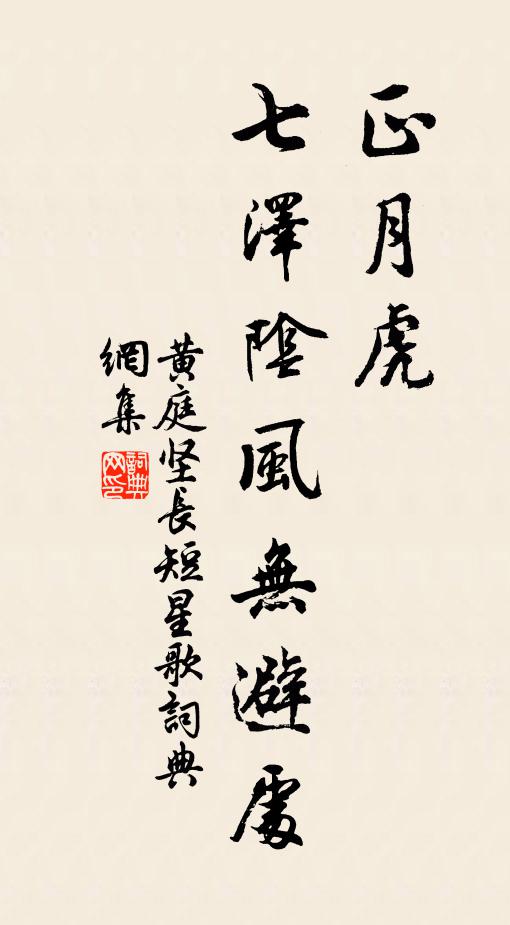 正月虎
七澤陰風無避處
黄庭坚長短星歌詞典
網集
詞典
网印